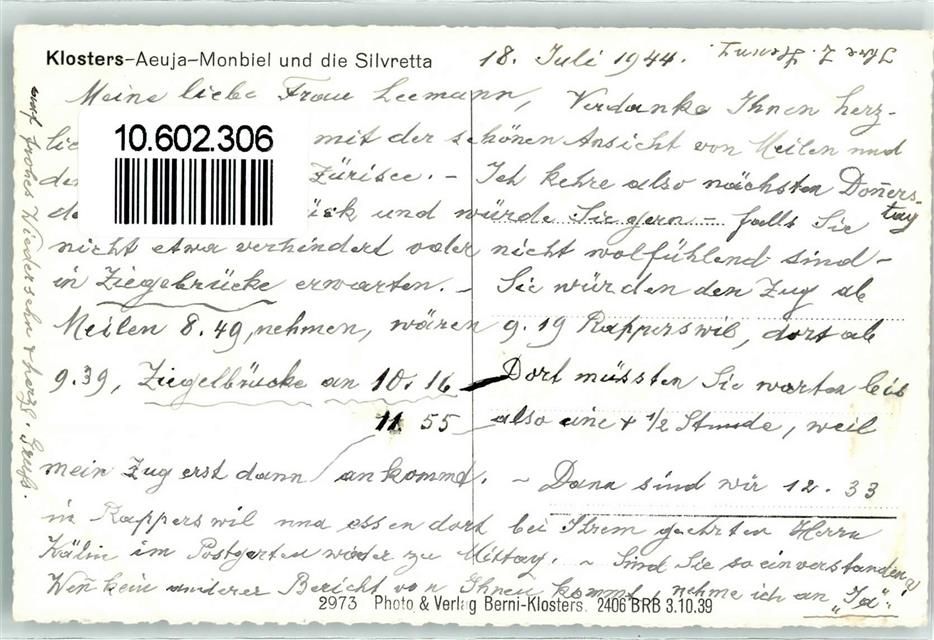 Klosters-Aeuja-Monbiel und die Silvretta
18. Juli 1944.
Meine liebe Frau Leemann, Verdanke Ihnen herz-
10.602.306
mit der schönen Ansicht von Meilen und
Zürisee. - Ich kehre also nächsten Don̄ers-
tag
und würde Sie gern - falls Sie
nicht etwa verhindert oder nicht wolfühlend sind -
in Ziegebrücke erwarten. - Sie würden den Zug ab
Meilen 8.49, nehmen, wären 9.19 Rapperswil, dort ab
9.39, Ziegelbrücke an 10.16 - Dort müssten Sie warten bis
11.55 also eine + 1/2 Stunde, weil
mein Zug erst dann ankommt. - Dann sind wir 12.33
in Rapperswil und essen dort bei Ihrem geehrten Herrn
Kälin im Postgarten wieder zu Mittag. - Sind Sie so einverstanden?
Wen̄ kein anderer Bericht von Ihnen kommt, nehme ich an "Ja".
auf frohes Wiedersehn & herzl. Gruß.
Ihre
2973 Photo & Verlag Berni-Klosters. 2406 BRB 3.10.39